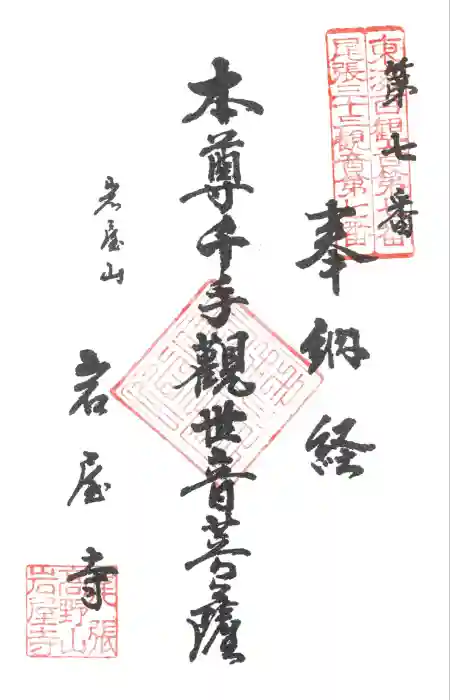 東海百観音第七番
尾張三十三観音第七番
第七番
奉納経
本尊千手觀世音菩薩
岩屋山
岩屋寺
尾張
高野山
岩屋寺